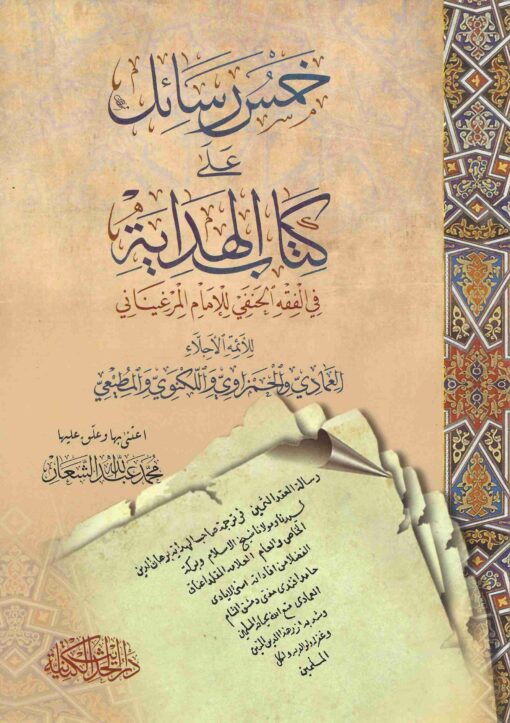 خمس رسائل
على
كتاب الهداية
في الفقه الحنفي للإمام المرغيناني
للأئمة الأجلاء
العمادي والحمزاوي واللكنوي والمطيعي
اعتنى بها وعلق عليها
محمد عبد الله الشعار
رسالة العقد الثمين في ترجمة صاحب الهداية برهان الدين
لسيدنا ومولانا شيخ الاسلام وبركة
الخاص والعام العلامة
حامد افندي مفتي دمشق الشام
العمادي
المسلمين
دار إحياء التراث